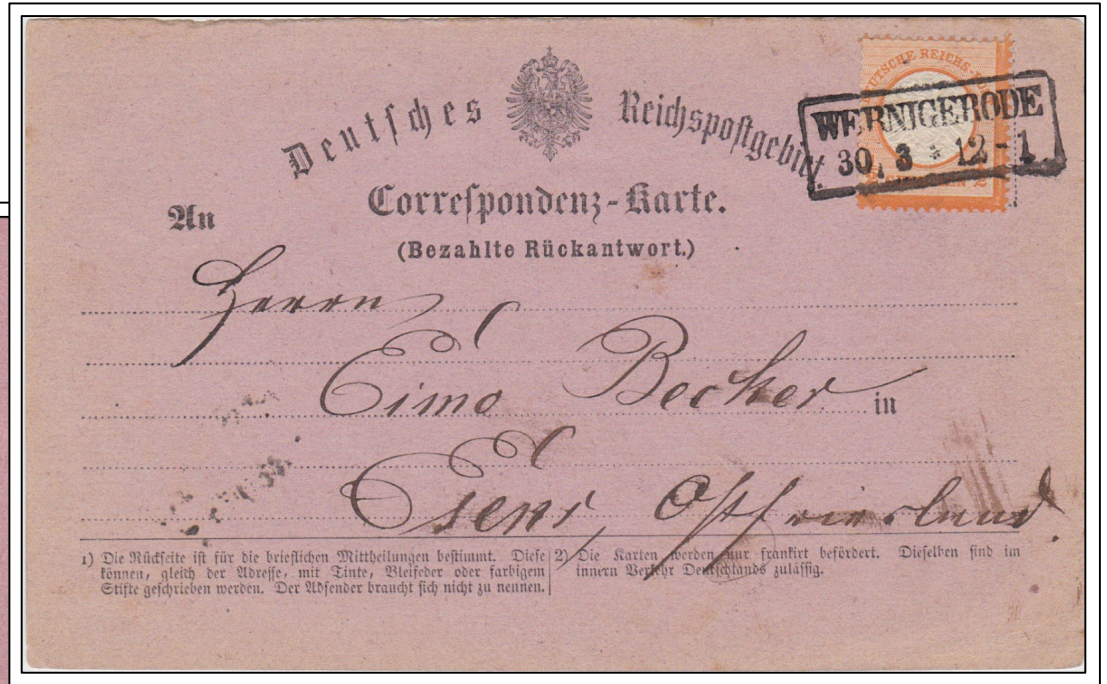 Deutsches Reichspostgebiet
WERNIGERODE
30. 3 * 12-1
DEUTSCHE REICHS-
Correspondenz-Karte.
An
(Bezahlte Rückantwort.)
Herrn
Eimo Becker in
Esens, Ostfriesland
1) Die Rückseite ist für die brieflichen Mittheilungen bestimmt. Diese
können, gleich der Adresse, mit Tinte, Bleifeder oder farbigem
Stifte geschrieben werden. Der Absender braucht sich nicht zu nennen.
2) Die Karten werden nur frankirt befördert. Dieselben sind im
innern Verkehr Deutschlands zulässig.